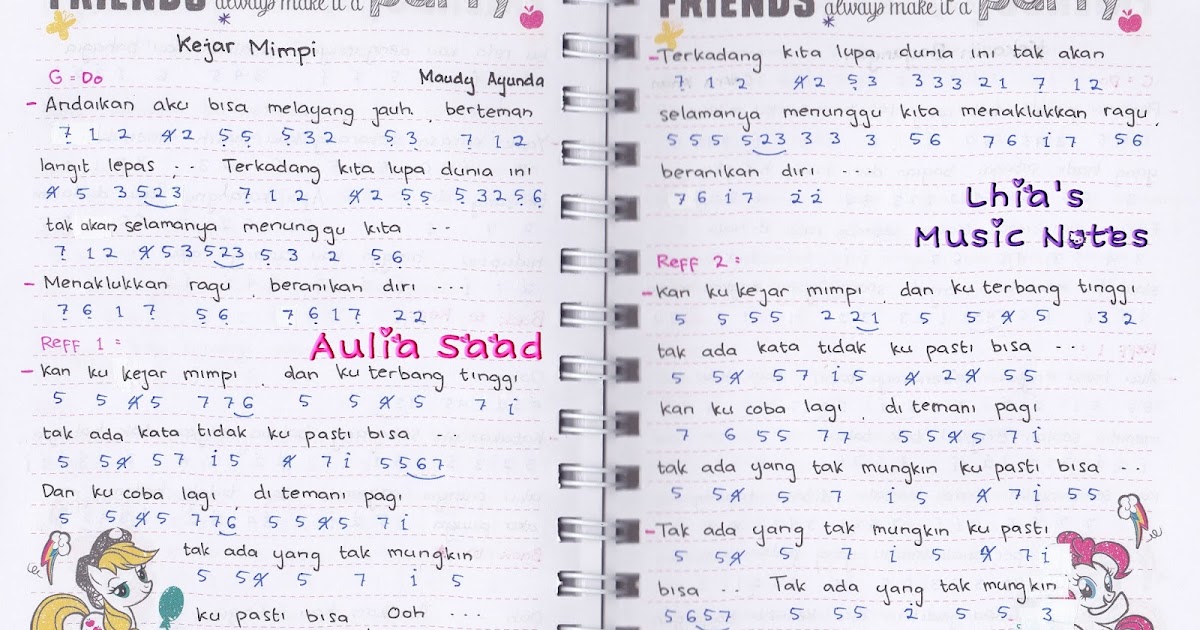 FRIENDS always make it a party
Kejar Mimpi
G = Do Maudy Ayunda
- Andaikan aku bisa melayang jauh, berteman
7̣ 1 2 4̸ 2 5̣ 5̣ 5̣ 3 2 5̣ 3 7̣ 1 2
langit lepas .. Terkadang kita lupa dunia ini
4̸ 5 3 5 2 3 7̣ 1 2 4̸ 2 5̣ 5̣ 5̣ 3 2 5̣ 6̣
tak akan selamanya menunggu kita ..
7̣ 1 2 4̸ 5 3 5 2 3 5̣ 3 2 5̣ 6̣
- Menaklukkan ragu, beranikan diri ...
7̣ 6̣ 1 7̣ 5̣ 6̣ 7̣ 6̣ 1 7̣ 2 2
Reff 1 :
Aulia Saad
- Kan ku kejar mimpi, dan ku terbang tinggi
5 5 4̸ 5 7 7 6 5 5 4̸ 5 7 i
tak ada kata tidak ku pasti bisa ..
5 5 4̸ 5 7 i 5 4̸ 7 i 5 5 6 7
Dan ku coba lagi, di temani pagi
5 5 4̸ 5 7 7 6 5 5 4̸ 5 7 i
tak ada yang tak mungkin
5 5 4̸ 5 7 i 5
ku pasti bisa Ooh ...
FRIENDS always make it a party
- Terkadang kita lupa dunia ini tak akan
7̣ 1 2 4̸ 2 5̣ 3 3 3 3 2 1 7 1 2
selamanya menunggu kita menaklukkan ragu,
5 5 5 5 2 3 3 3 3 5 6 7 6 i 7 5 6
beranikan diri ...
7 6 i 7 2̇ 2̇
Lhia's
Music Notes
Reff 2 :
- Kan ku kejar mimpi, dan ku terbang tinggi
5 5 5 5 2 2 1 5 5 4̸ 5 3 2
tak ada kata tidak ku pasti bisa ..
5 5 4̸ 5 7 i 5 4̸ 2 4̸ 5 5
kan ku coba lagi, di temani pagi
7 6 5 5 7 7 5 5 4̸ 5 7 i
tak ada yang tak mungkin ku pasti bisa ..
5 5 4̸ 5 7 i 5 4̸ 7 i 5 5
- Tak ada yang tak mungkin ku pasti
5 5 4̸ 5 7 i 5 4̸ 7 i
bisa .. Tak ada yang tak mungkin
5 6 5 7 5 5 5 2 5 5 3